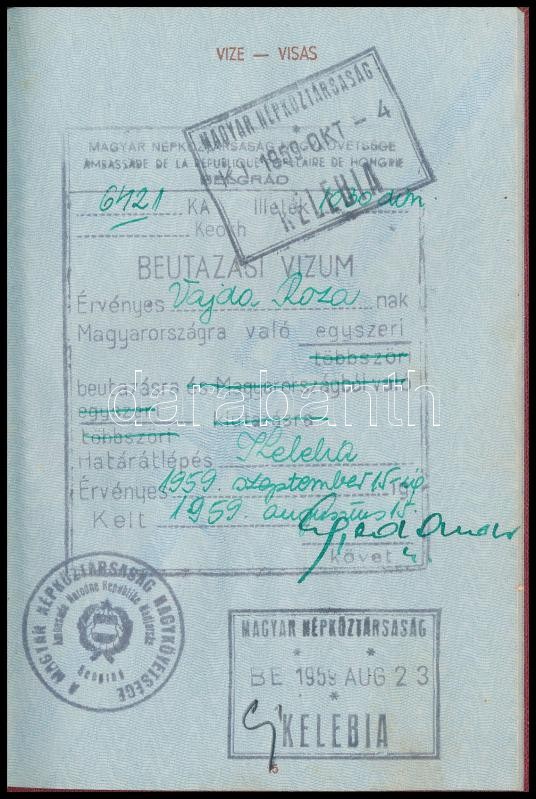 VIZE — VISAS
MAGYAR NÉPKÖZTÁRSASÁG
KI 1959 OKT – 4
KELEBIA
MAGYAR NÉPKÖZTÁRSASÁG NAGYKÖVETSÉGE
AMBASSADE DE LA RÉPUBLIQUE POPULAIRE DE HONGRIE
BELGRÁD
6421 KA Illeték 1030 din.
Keokh
BEUTAZÁSI VÍZUM
Érvényes Vajda Roza nak
Magyarországra való egyszeri
többször
beutazásra és Magyarországból való
egyszeri kiutazásra
többszöri
Határátlépés Kelebia
Érvényes 1959. szeptember 15-ig
Kelt 1959. augusztus 15.
Követ
A MAGYAR NÉPKÖZTÁRSASÁG NAGYKÖVETSÉGE
Beograd
MAGYAR NÉPKÖZTÁRSASÁG
BE 1959 AUG 23
KELEBIA
15
darabanth